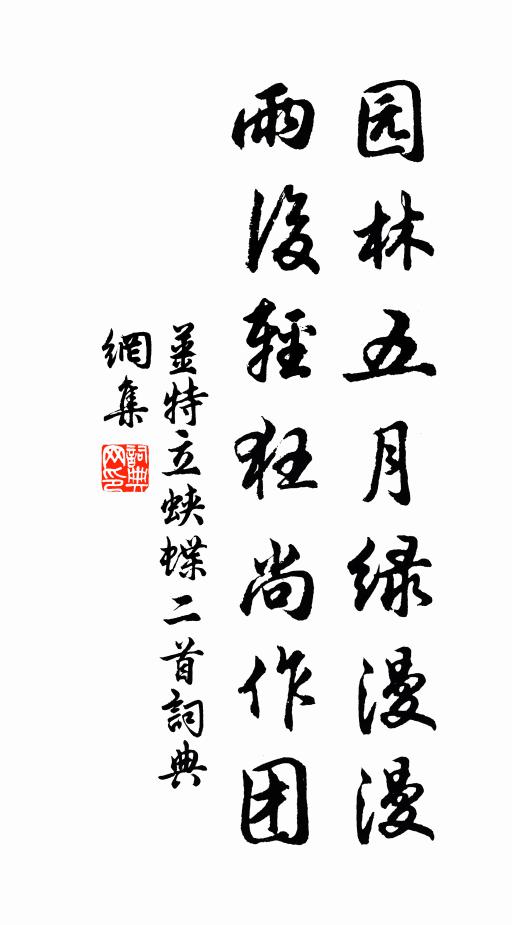 园林五月绿漫漫
雨後輕狂尚作团
姜特立蛱蝶二首詞典
網集
詞典網印